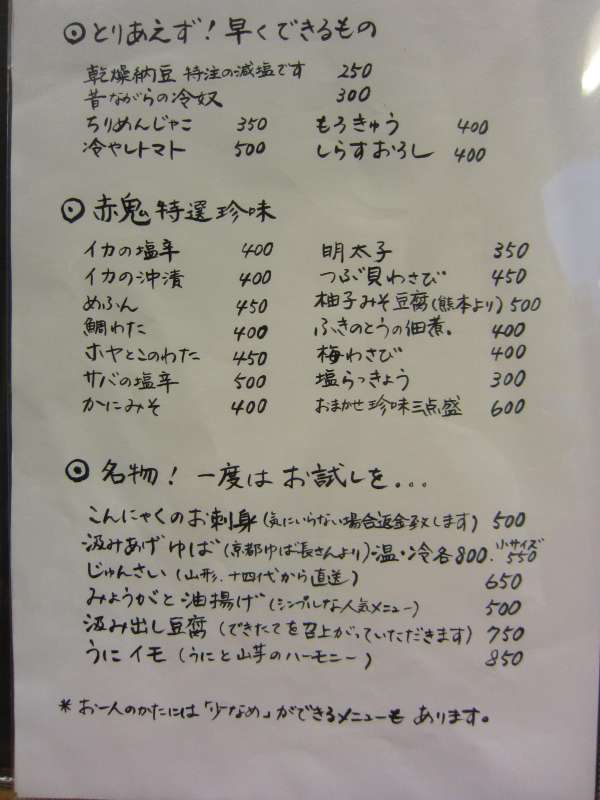 ◎ とりあえず！早くできるもの
乾燥納豆 特注の減塩です 250
昔ながらの冷奴 300
ちりめんじゃこ 350 もろきゅう 400
冷やしトマト 500 しらすおろし 400
◎ 赤鬼 特選珍味
イカの塩辛 400 明太子 350
イカの沖漬 400 つぶ貝わさび 450
めふん 450 柚子みそ豆腐(熊本より) 500
鯛わた 400 ふきのとうの佃煮。 400
ホヤとこのわた 450 梅わさび 400
サバの塩辛 500 塩らっきょう 300
かにみそ 400 おまかせ珍味三点盛 600
◎ 名物！ 一度は お試しを...
こんにゃくのお刺身(気にいらない場合返金致します) 500
汲みあげゆば(京都ゆば長さんより)温・冷各800. 小サイズ550
じゅんさい(山形、十四代から直送) 650
みょうがと油揚げ(シンプルな人気メニュー) 500
汲み出し豆腐(できたてを召上がっていただきます) 750
うにイモ(うにと山芋のハーモニー) 850
* お一人のかたには「少なめ」ができるメニューも あります。